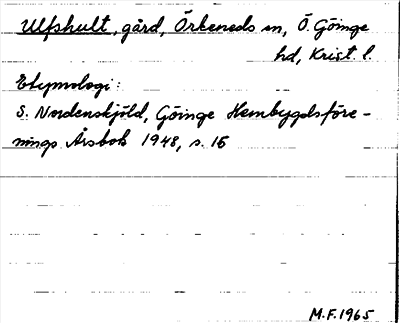 Ulfshult, gård, Örkeneds sn, Ö. Göinge
hd, Krist. l.
Etymologi:
S. Nordenskjöld, Göinge Hembygdsföre-
nings Årsbok 1948, s. 15
M.F. 1965